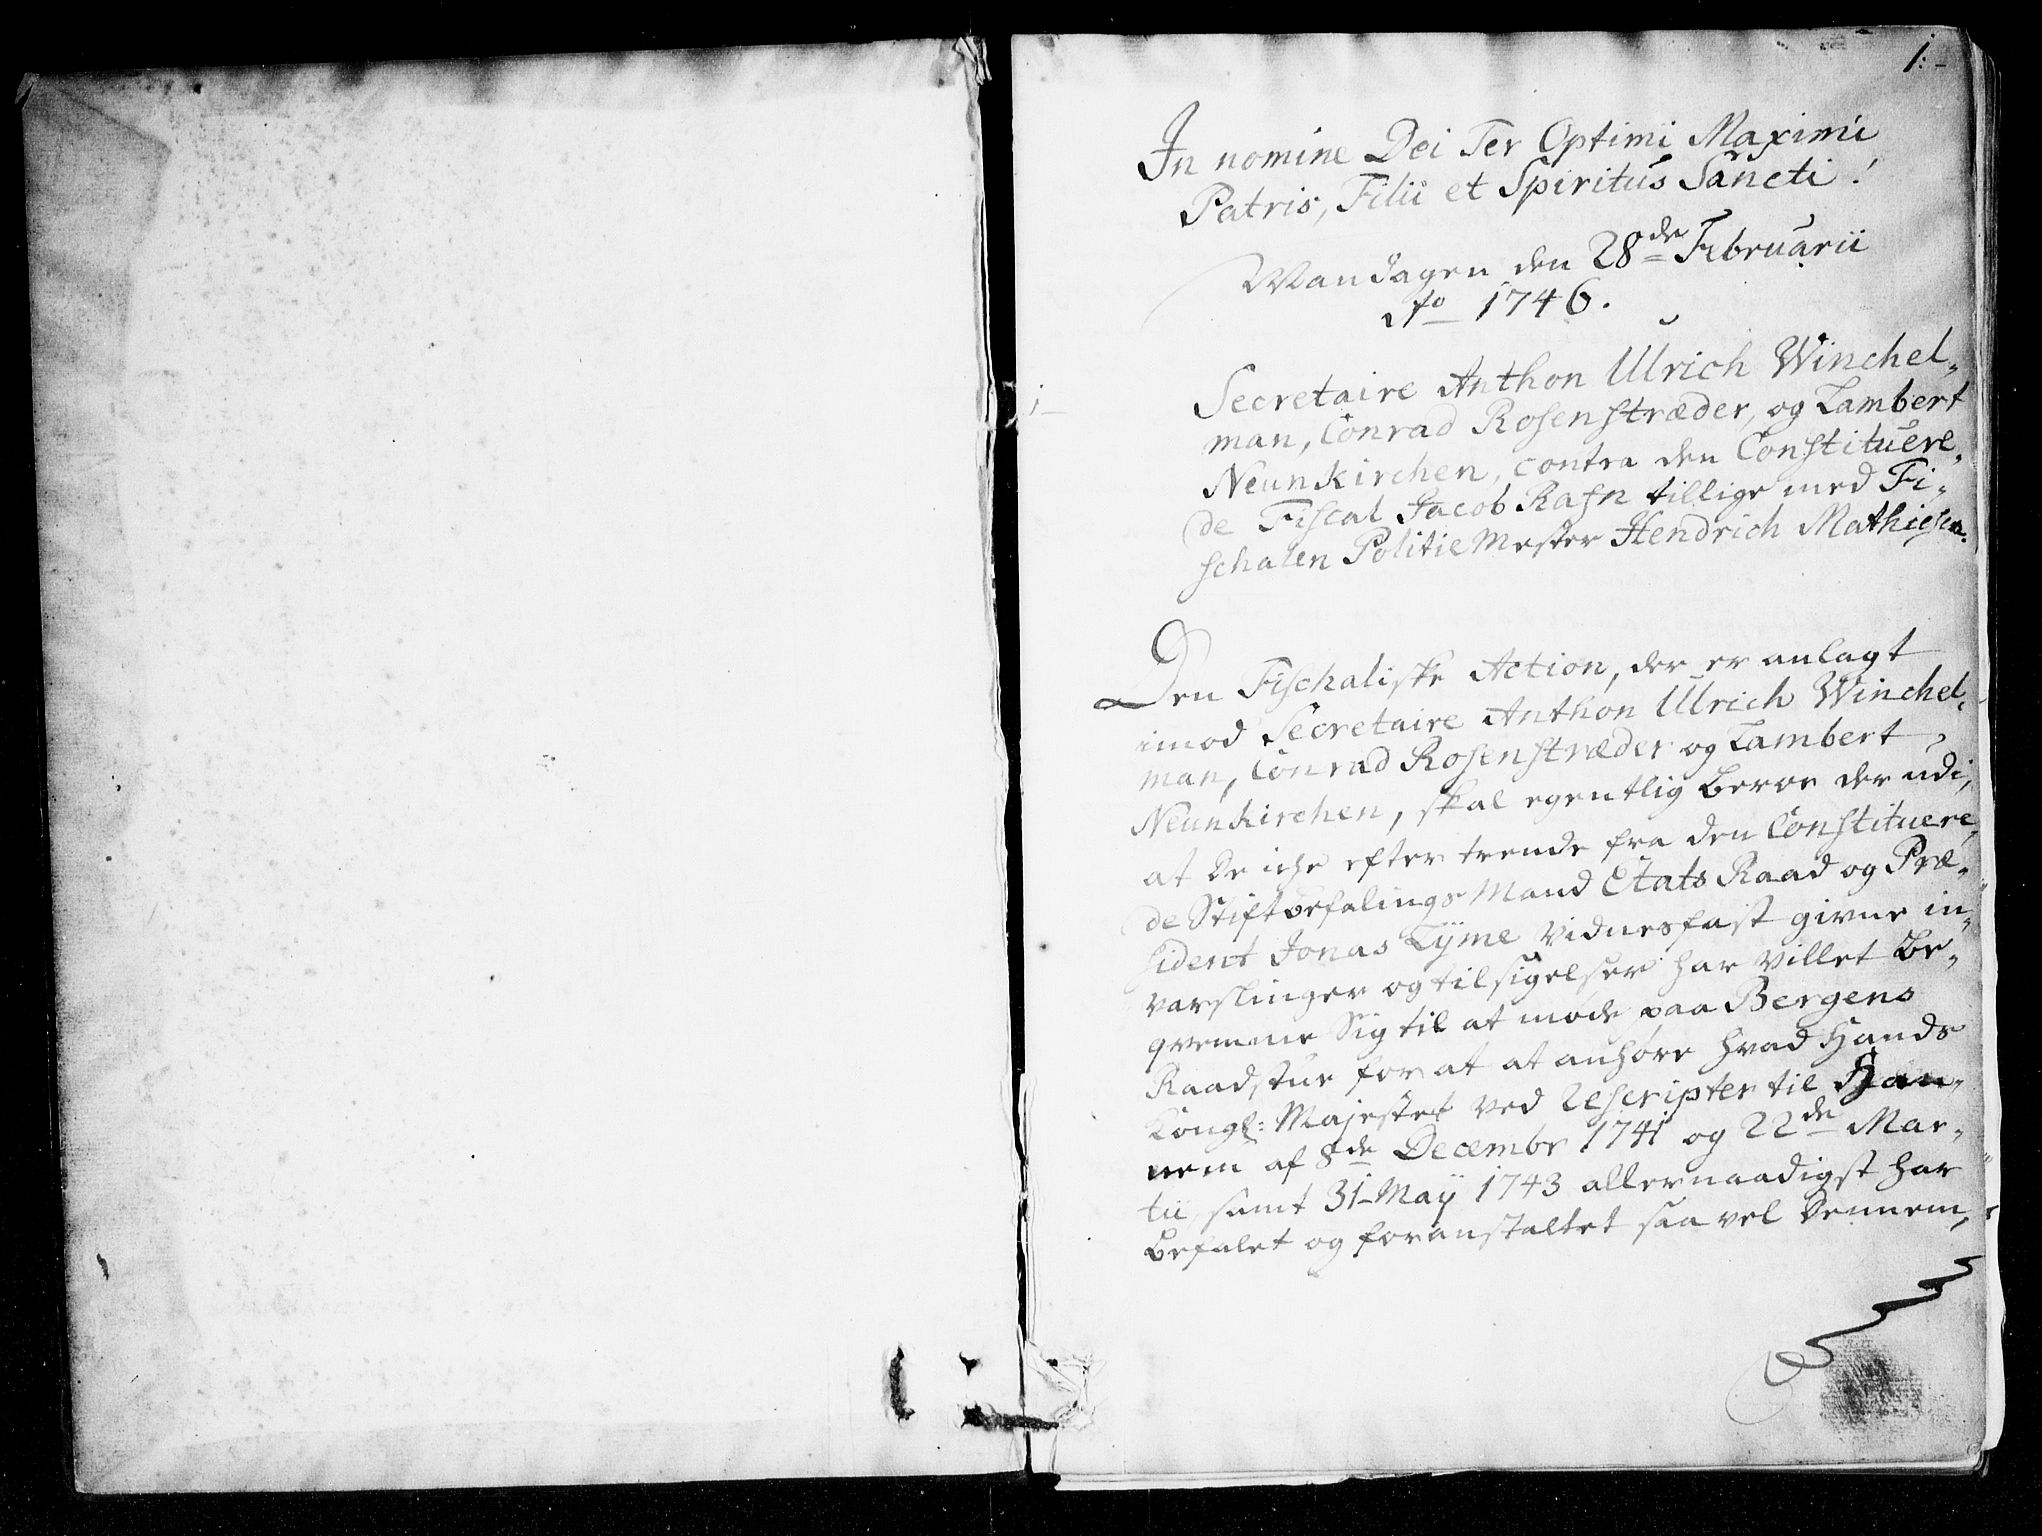 1:-
In nomine Dei Ter Optimi Maximi
Patris, Filii et Spiritus Sancti!
Mandagen den 28de Februarii
Ao 1746.
1-
Secretaire Anthon Ulrich Winchel-
man, Conrad Rosenstræder, og Lambert
Neunkirchen, contra den Constituere-
de Fiscal Jacob Rafn tillige med Fi-
schalen Politie Mester Hendrich Mathiesen.
Den Fischaliske Action, der er anlagt
imod Secretaire Anthon Ulrich Winchel-
man, Conrad Rosenstræder og Lambert
Neunkirchen, skal egentlig beroe der udi,
at De iche efter trende fra den Constituere-
de Stiftbefalings Mand Etats Raad og Præ-
sident Jonas Lyme vidnesfast givne in-
varslinger og tilsigelser har villet be-
qvemme Sig til at møde paa Bergens
Raadstue for at at anhøre hvad Hands
Kongl: Majestet ved Rescripter til Han-
nem af 8de Decembr 1741 og 22de Mar-
tii, samt 31 Maij 1743 allernaadigst har
befalet og foranstaltet saa vel Dennem,